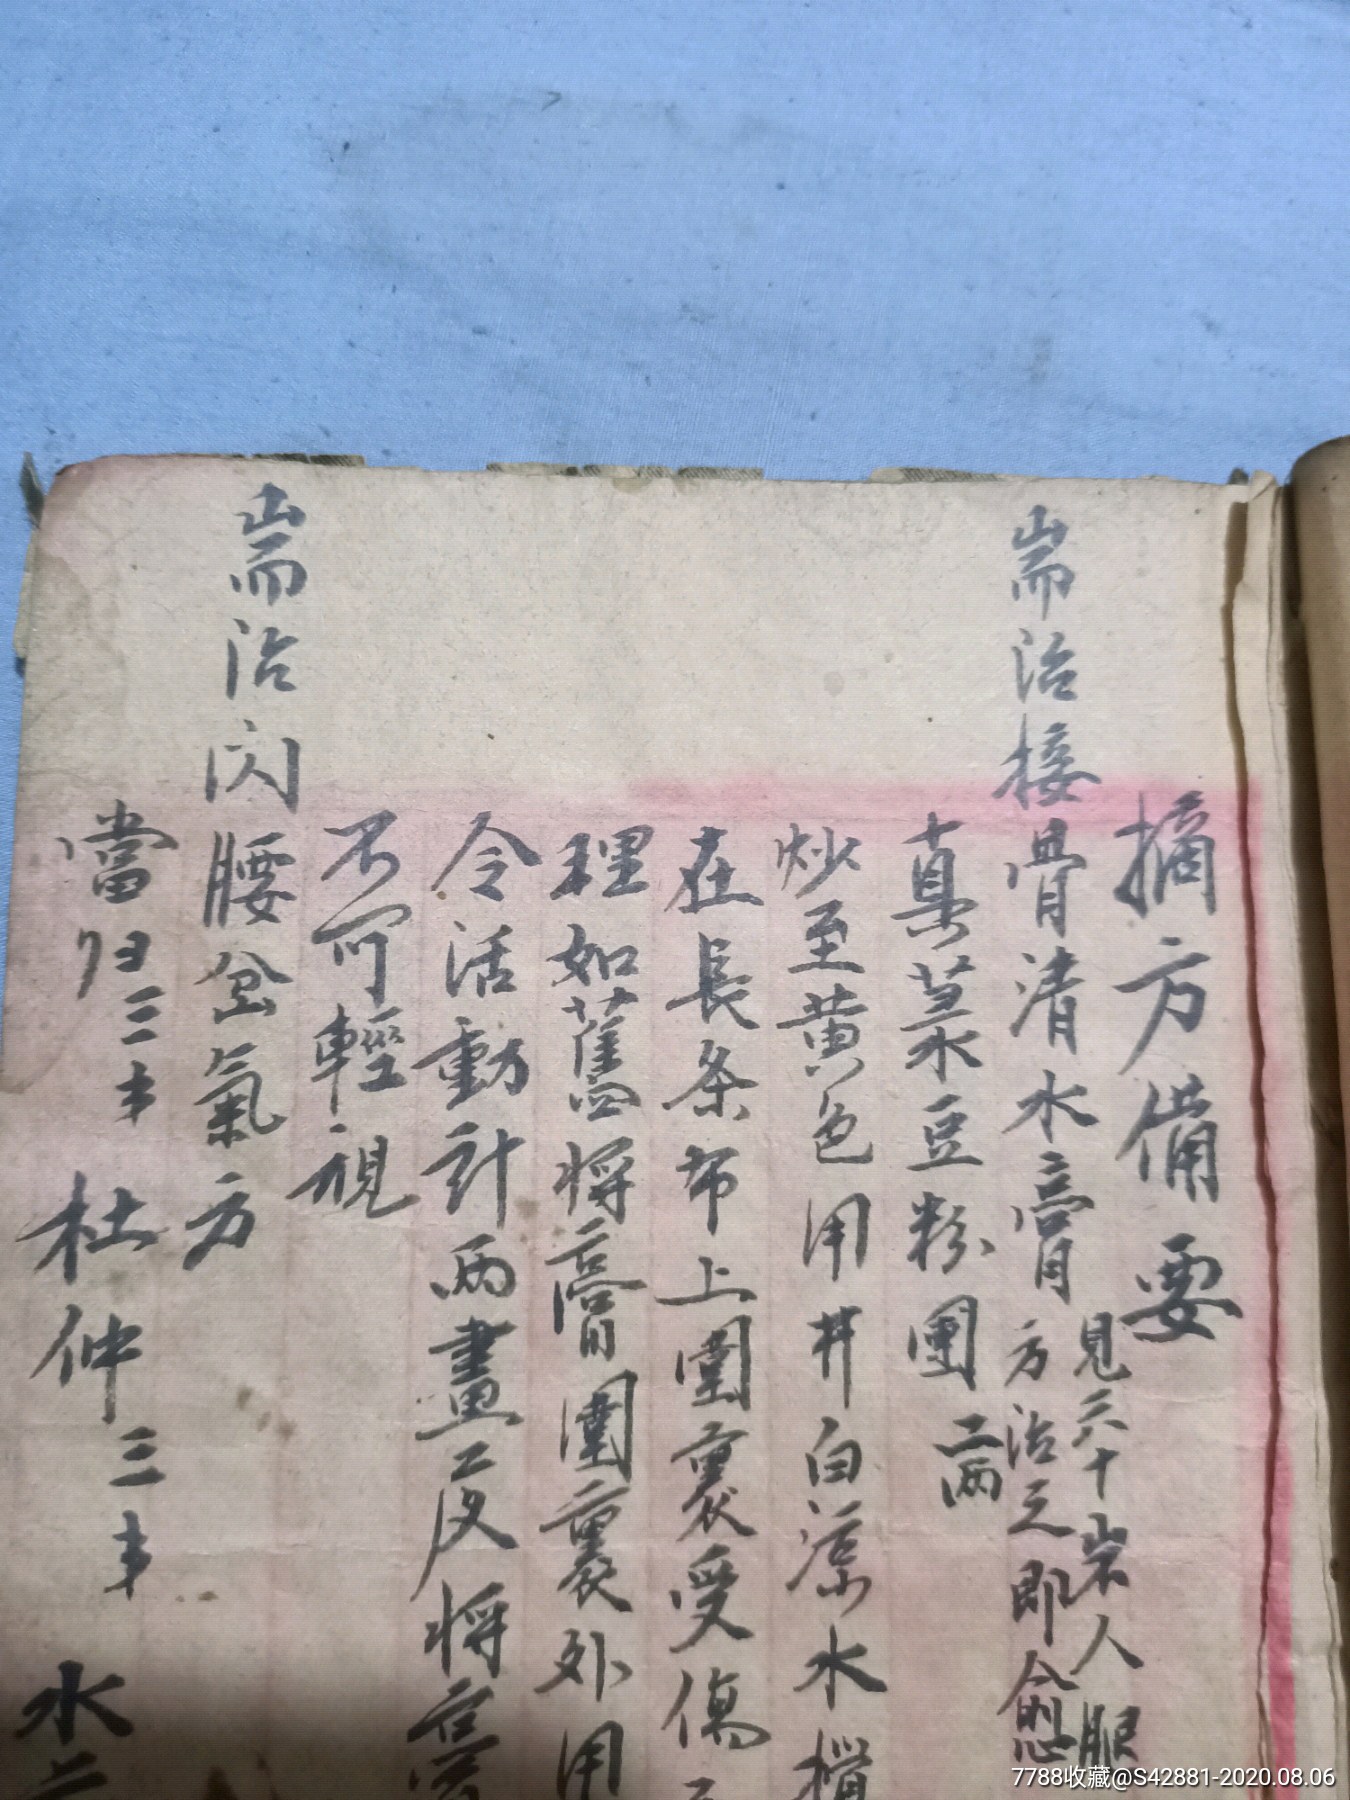 摘方備要
耑治接骨清水膏
見六十岩人服
方治之即愈
真菉豆粉團 二两
炒至黄色用井白凉水
在長条布上圍裹受傷
理如舊將膏圍裹外用
令活動計兩晝工夜將
不可輕視
耑治闪腰岔氣方
當归三
杜仲三
水
7788收藏@S42881-2020.08.06